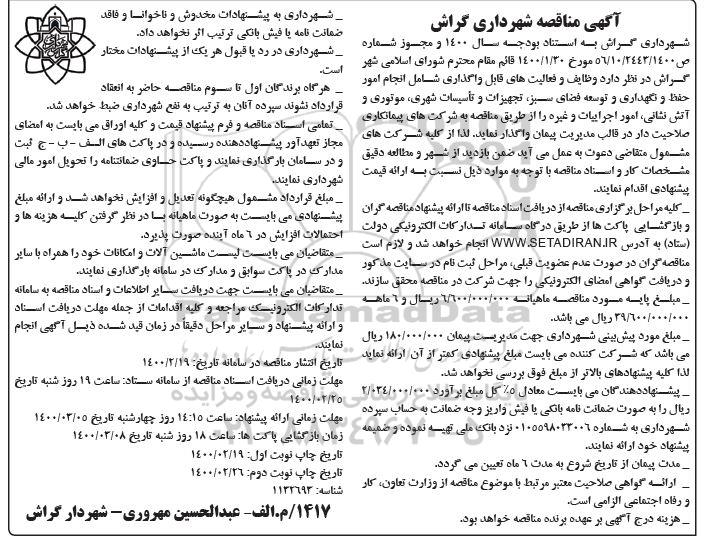 آگهی مناقصه شهرداری گراش
شهرداری گراش به استناد بودجه سال ۱۴۰۰ و مجوز شماره
ص۵۶/۱۰/۲۴۴۳/۱۴۰۰ مورخ ۱۴۰۰/۱/۳۰ قائم مقام محترم شورای اسلامی شهر
گراش در نظر دارد وظایف و فعالیت های قابل واگذاری شامل انجام امور
حفظ و نگهداری و توسعه فضای سبز، تجهیزات و تأسیسات شهری، موتوری و
آتش نشانی، امور اجراییات و غیره را از طریق مناقصه به شرکت های پیمانکاری
صلاحیت دار در قالب مدیریت پیمان واگذار نماید. لذا از کلیه شرکت های
مشمول متقاضی دعوت به عمل می آید ضمن بازدید از شهر و مطالعه دقیق
مشخصات کار و اسناد مناقصه با توجه به موارد ذیل نسبت به ارائه قیمت
پیشنهادی اقدام نمایند.
_ کلیه مراحل برگزاری مناقصه از دریافت اسناد مناقصه تا ارائه پیشنهاد مناقصه گران
و بازگشایی پاکت ها از طریق درگاه سامانه تدارکات الکترونیکی دولت
(ستاد) به آدرس WWW.SETADIRAN.IR انجام خواهد شد و لازم است
مناقصه گران در صورت عدم عضویت قبلی، مراحل ثبت نام در سایت مذکور
و دریافت گواهی امضای الکترونیکی را جهت شرکت در مناقصه محقق سازند.
_ مبلغ پایه مورد مناقصه ماهیانه ۶/۶۰۰/۰۰۰/۰۰۰ ریال و ۶ ماهه
۳۹/۶۰۰/۰۰۰/۰۰۰ ریال می باشد.
_ مبلغ مورد پیش بینی شهرداری جهت مدیریت پیمان ۱۸۰/۰۰۰/۰۰۰ ریال
می باشد که شرکت کننده می بایست مبلغ پیشنهادی کمتر از آن ارائه نماید
لذا کلیه پیشنهادهای بالاتر از مبلغ فوق بررسی نخواهد شد.
_ پیشنهاددهندگان می بایست معادل ۵٪ کل مبلغ برآورد ۲/۰۳۴/۰۰۰/۰۰۰
ریال را به صورت ضمانت نامه بانکی یا فیش واریز وجه ضمانت به حساب سپرده
شهرداری به شماره ۰۱۰۵۵۹۸۰۳۳۰۰۶ نزد بانک ملی تهیه نموده و ضمیمه
پیشنهاد خود ارائه نمایند.
_ مدت پیمان از تاریخ شروع به مدت ۶ ماه تعیین می گردد.
_ ارائه گواهی صلاحیت معتبر مرتبط با موضوع مناقصه از وزارت تعاون، کار
و رفاه اجتماعی الزامی است.
_ هزینه درج آگهی بر عهده برنده مناقصه خواهد بود.
_ شهرداری به پیشنهادات مخدوش و ناخوانا و فاقد
ضمانت نامه یا فیش بانکی ترتیب اثر نخواهد داد.
_ شهرداری در رد یا قبول هر یک از پیشنهادات مختار
است.
_ هرگاه برندگان اول تا سوم مناقصه حاضر به انعقاد
قرارداد نشوند سپرده آنان به ترتیب به نفع شهرداری ضبط خواهد شد.
_ تمامی اسناد مناقصه و فرم پیشنهاد قیمت و کلیه اوراق می بایست به امضای
مجاز تعهدآور پیشنهاددهنده رسیده و در پاکت های الف - ب - ج ثبت
و در سامان بارگذاری نمایند و پاکت حاوی ضمانتنامه را تحویل امور مالی
شهرداری نمایند.
_ مبلغ قرارداد مشمول هیچگونه تعدیل و افزایش نخواهد شد و ارائه مبلغ
پیشنهادی می بایست به صورت ماهیانه با در نظر گرفتن کلیه هزینه ها و
احتمالات افزایش در ۶ ماه آینده صورت پذیرد.
_ متقاضیان می بایست لیست ماشین آلات و امکانات خود را همراه با سایر
مدارک در پاکت سوابق و مدارک در سامانه بارگذاری نمایند.
_ متقاضیان می بایست جهت دریافت سایر اطلاعات و اسناد مناقصه به سامانه
تدارکات الکترونیک مراجعه و کلیه اقدامات از جمله مهلت دریافت اسناد
و ارائه پیشنهاد و سایر مراحل دقیقاً در زمان قید شده ذیل آگهی انجام
نمایند.
تاریخ انتشار مناقصه در سامانه تاریخ: ۱۴۰۰/۲/۱۹
مهلت زمانی دریافت اسناد مناقصه از سامانه ستاد: ساعت ۱۹ روز شنبه تاریخ
۱۴۰۰/۰۲/۲۵
مهلت زمانی ارائه پیشنهاد: ساعت ۱۴:۱۵ روز چهارشنبه تاریخ ۱۴۰۰/۰۳/۰۵
زمان بازگشایی پاکت ها: ساعت ۱۸ روز شنبه تاریخ ۱۴۰۰/۰۳/۰۸
تاریخ چاپ نوبت اول: ۱۴۰۰/۰۲/۱۹
تاریخ چاپ نوبت دوم: ۱۴۰۰/۰۲/۲۶
شناسه: ۱۱۳۲۶۹۳
۱۴۱۷/م.الف- عبدالحسین مهروری- شهردار گراش